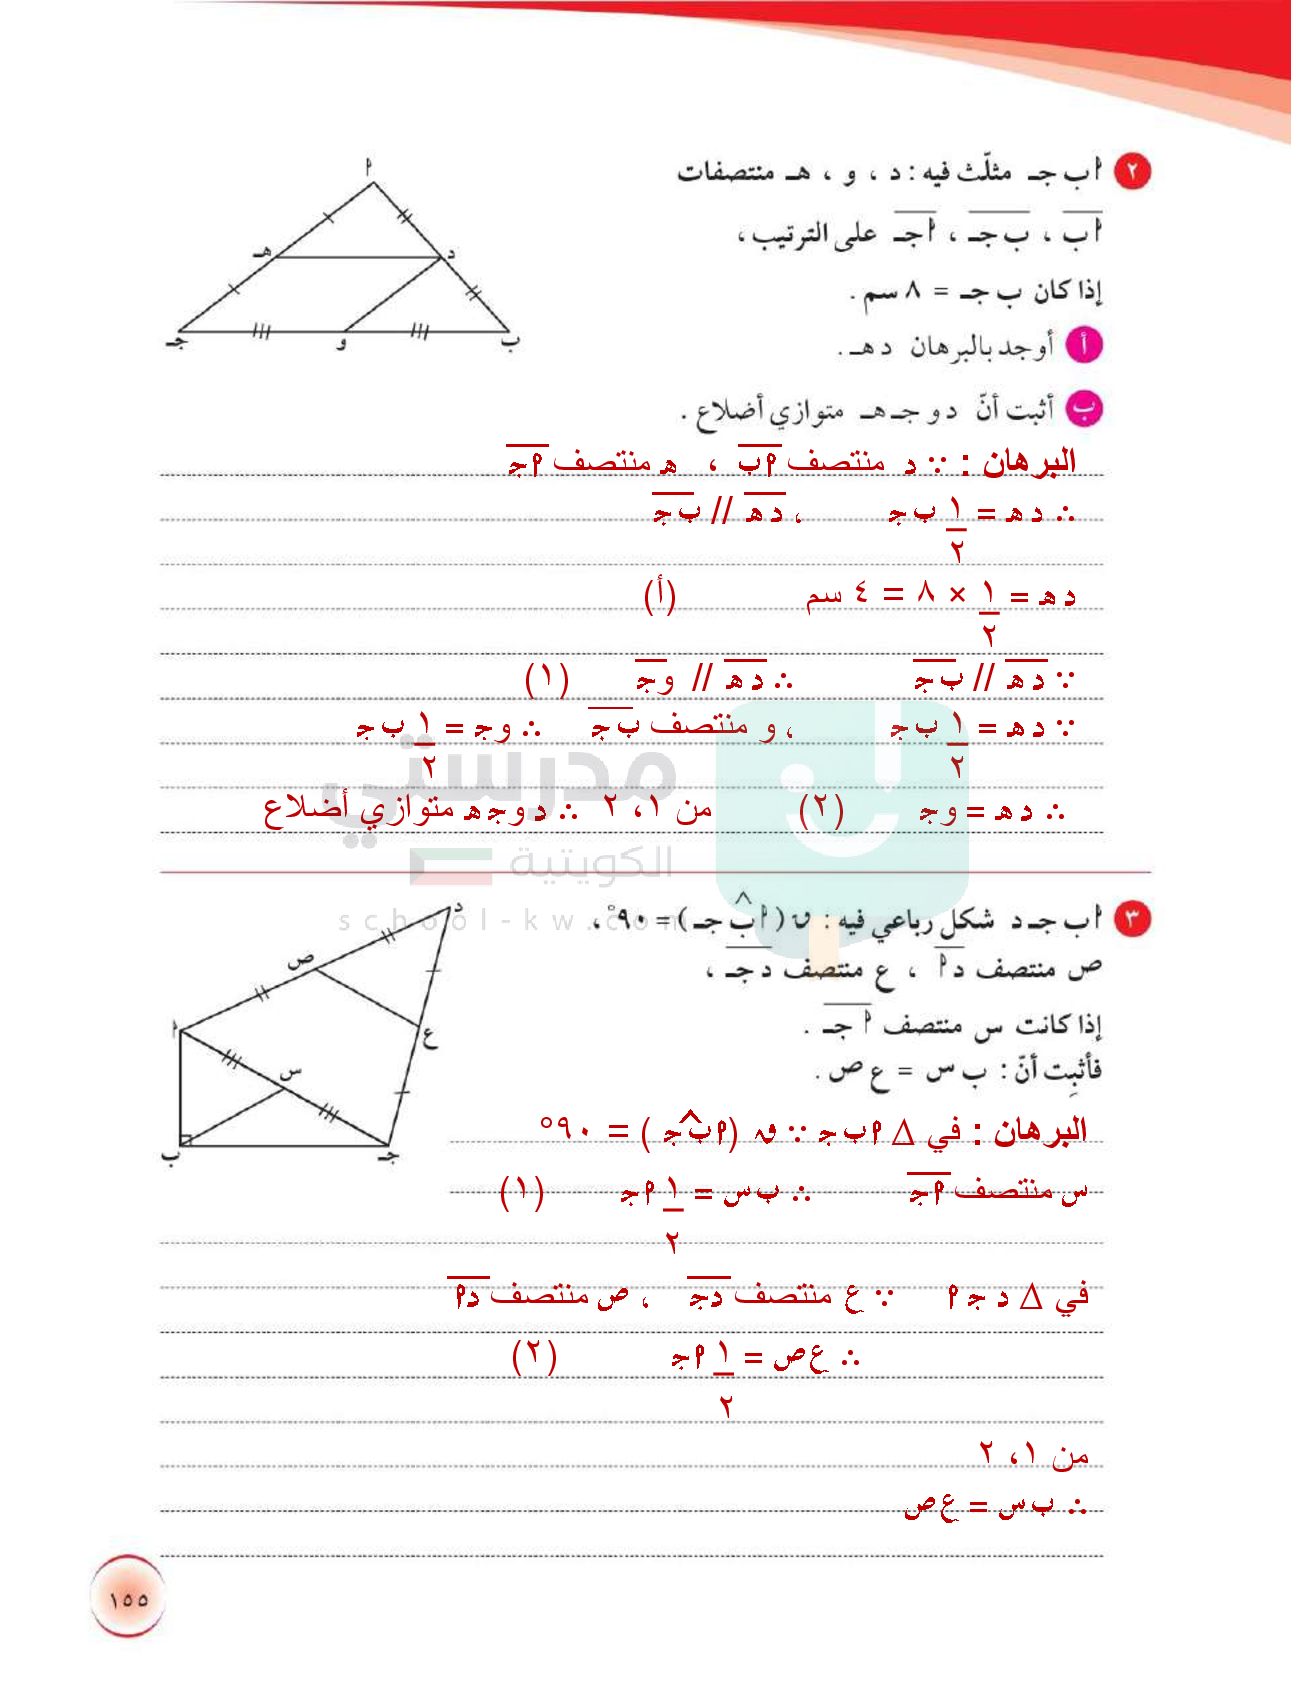 ٢ أ ب جـ مثلّث فيه : د ، و ، هـ منتصفات
أ ب ، ب جـ ، أ جـ على الترتيب ،
إذا كان ب جـ = ٨ سم .
أ أوجد بالبرهان د هـ .
ب أثبت أنّ د و جـ هـ متوازي أضلاع .
أ
هـ
د
جـ
و
ب
البرهان : ∵ د منتصف أ ب ، هـ منتصف أ جـ
∴ د هـ = ١/٢ ب جـ ، د هـ // ب جـ
د هـ = ١/٢ × ٨ = ٤ سم (أ)
∵ د هـ // ب جـ ∴ د هـ // و جـ (١)
∵ د هـ = ١/٢ ب جـ ، و منتصف ب جـ ∴ و جـ = ١/٢ ب جـ
∴ د هـ = و جـ (٢) من ١، ٢ ∴ د و جـ هـ متوازي أضلاع
مدرستي
الكويتية
school-kw.com
٣ أ ب جـ د شكل رباعي فيه : ق ( أ ب̂ جـ ) = ٩٠° ،
ص منتصف د أ ، ع منتصف د جـ ،
إذا كانت س منتصف أ جـ .
فأثبِت أنّ : ب س = ع ص .
د
ص
أ
ع
س
ب
جـ
البرهان : في Δ أ ب جـ ∵ ق (أ ب̂ جـ ) = ٩٠°
س منتصف أ جـ ∴ ب س = ١/٢ أ جـ (١)
في Δ د جـ أ ∵ ع منتصف د جـ ، ص منتصف د أ
∴ ع ص = ١/٢ أ جـ (٢)
من ١، ٢
∴ ب س = ع ص
١٥٥